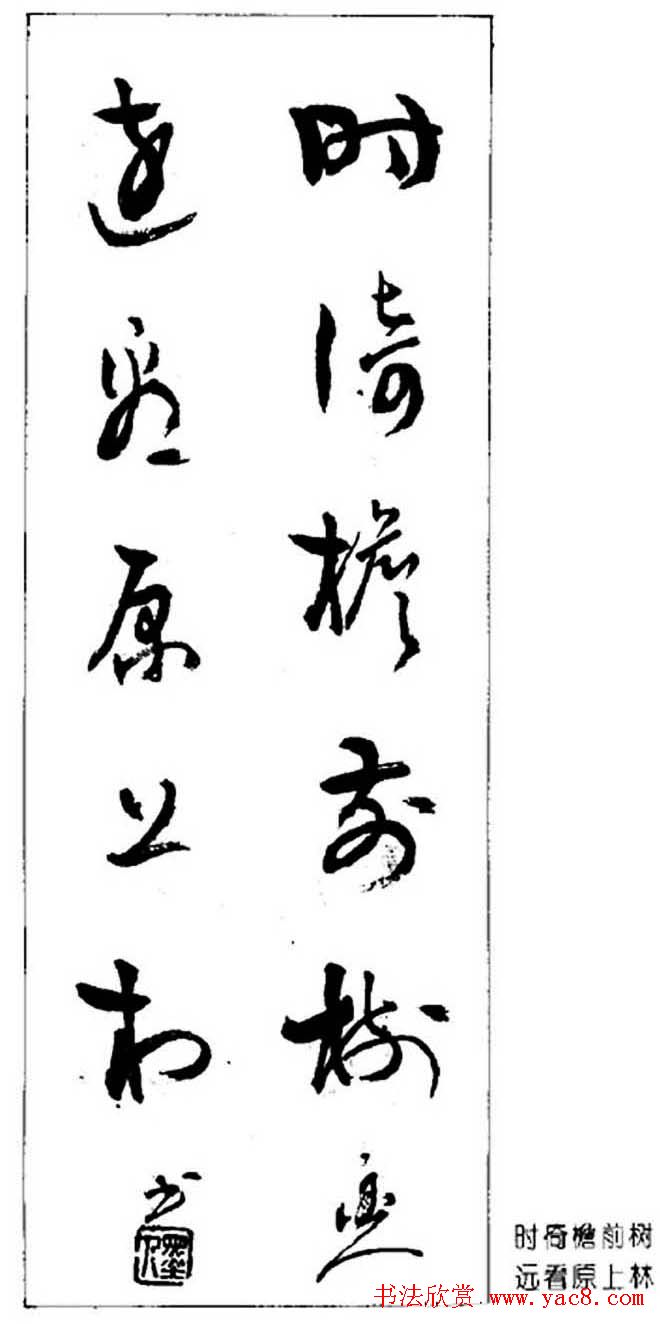 时倚檐前树
远看原上村
书
时倚檐前树
远看原上林
书法欣赏 www.yac8.com